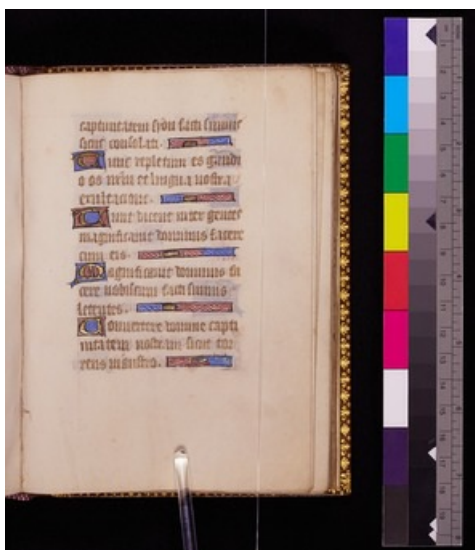 captiuitatem syon facti sumus
sicut consolati.
Tunc repletum es gaudi
o os nr̄m et lingua nostra
exultacione.
Tunc dicent inter gentes
magnificauit dominus facere
cum eis.
Magnificauit dominus fa
cere nobiscum facti sumus
letentes.
Conuertere domine capti
uitatem nostram sicut tor
rens in austro.